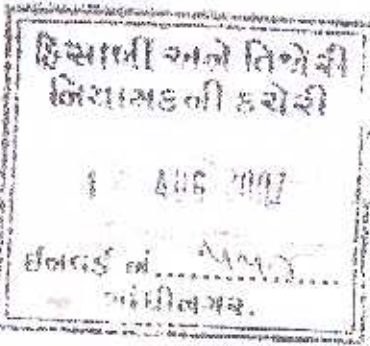 હિસાબી અને તિજોરી
નિયામકની કચેરી
1 AUG
ઈનવર્ડ નં.
ગાંધીનગર.